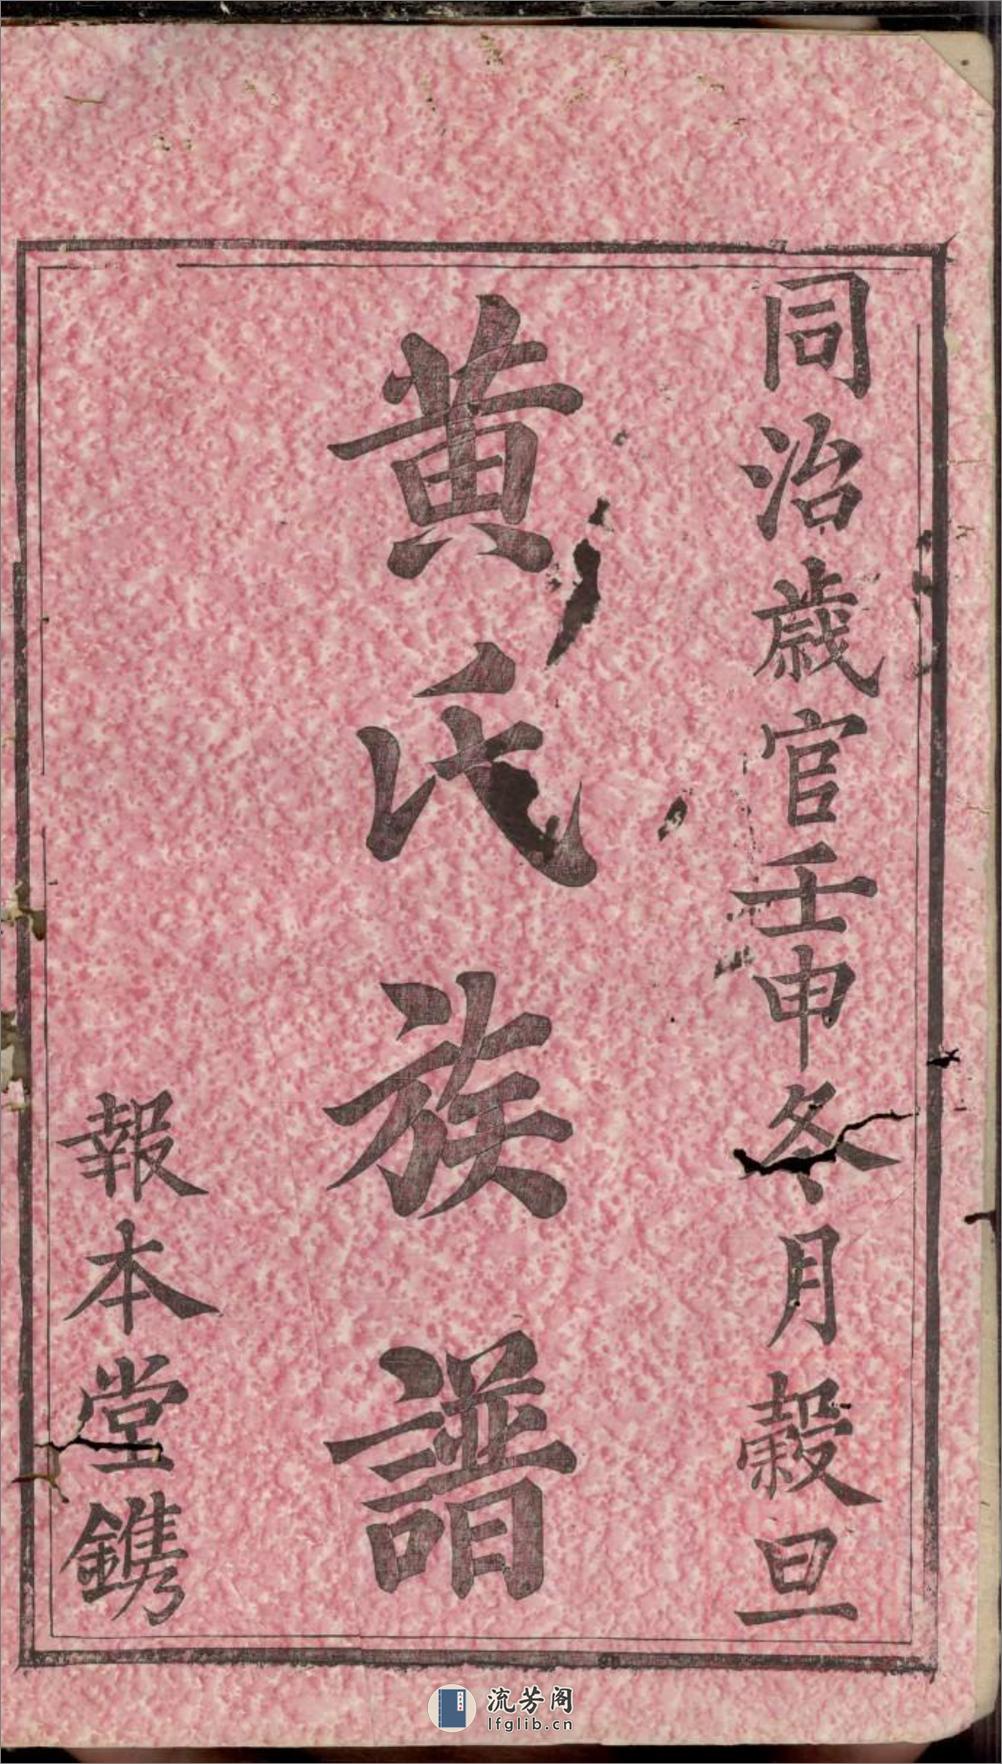 同治歳官壬申冬月穀旦
黄氏族譜
報本堂鐫
流芳阁
lfglib.cn